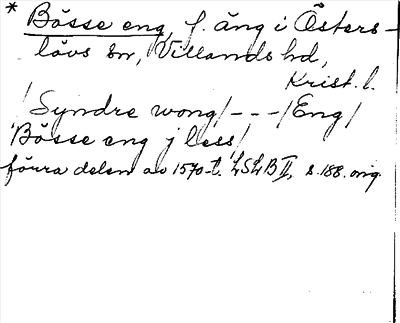 * Bösse eng, f. äng i Östers-
lövs sn, Villands hd,
Krist. l.
/Syndre wong/---/Eng/
Bösse eng j less/
förra delen av 1570-t. LSLB II, s. 188. orig.